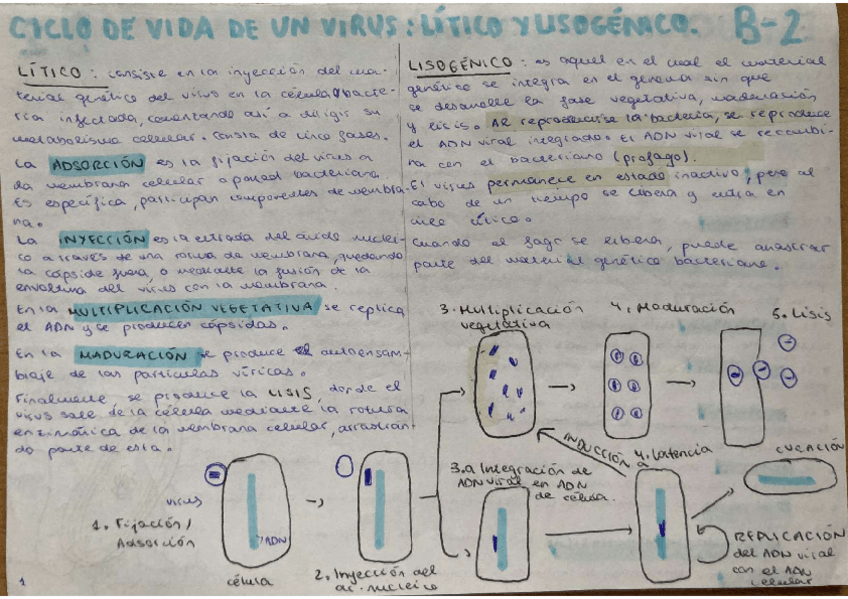 CICLO DE VIDA DE UN VIRUS: LÍTICO Y LISOGÉNICO. B-2
LÍTICO: consiste en la inyección del ma-
terial genético del virus en la célula/bacte-
ria infectada, comenzando así a dirigir su
metabolismo celular. Consta de cinco fases.
La ADSORCIÓN es la fijación del virus a
la membrana celular o pared bacteriana.
Es específica, participan componentes de membra-
na.
La INYECCIÓN es la entrada del ácido nuclei-
co a través de una rotura de membrana, quedando
la cápside fuera, o mediante la fusión de la
envoltura del virus con la membrana.
En la MULTIPLICACIÓN VEGETATIVA se replica
el ADN y se producen cápsidas.
En la MADURACIÓN se produce el autoensam-
blaje de las partículas víricas.
Finalmente, se produce la LISIS, donde el
virus sale de la célula mediante la rotura
enzimática de la membrana celular, arrastran-
do parte de esta.
LISOGÉNICO: es aquel en el cual el material
genético se integra en el genoma sin que
se desarrolle la fase vegetativa, maduración
y lisis. Al reproducirse la bacteria, se reproduce
el ADN viral integrado. El ADN viral se recombi-
na con el bacteriano (profago).
El virus permanece en estado inactivo, pero al
cabo de un tiempo se libera y entra en
ciclo lítico.
Cuando el fago se libera, puede arrastrar
parte del material genético bacteriano.
3. Multiplicación
vegetativa
4. Maduración
5. Lisis
INDUCCIÓN
3.a Integración de
ADN viral en ADN
de célula.
4.a Latencia
CURACIÓN
REPLICACIÓN
del ADN viral
con el ADN
celular
virus
1. Fijación/
Adsorción
ADN
célula
2. Inyección del
ac. nucleico
1